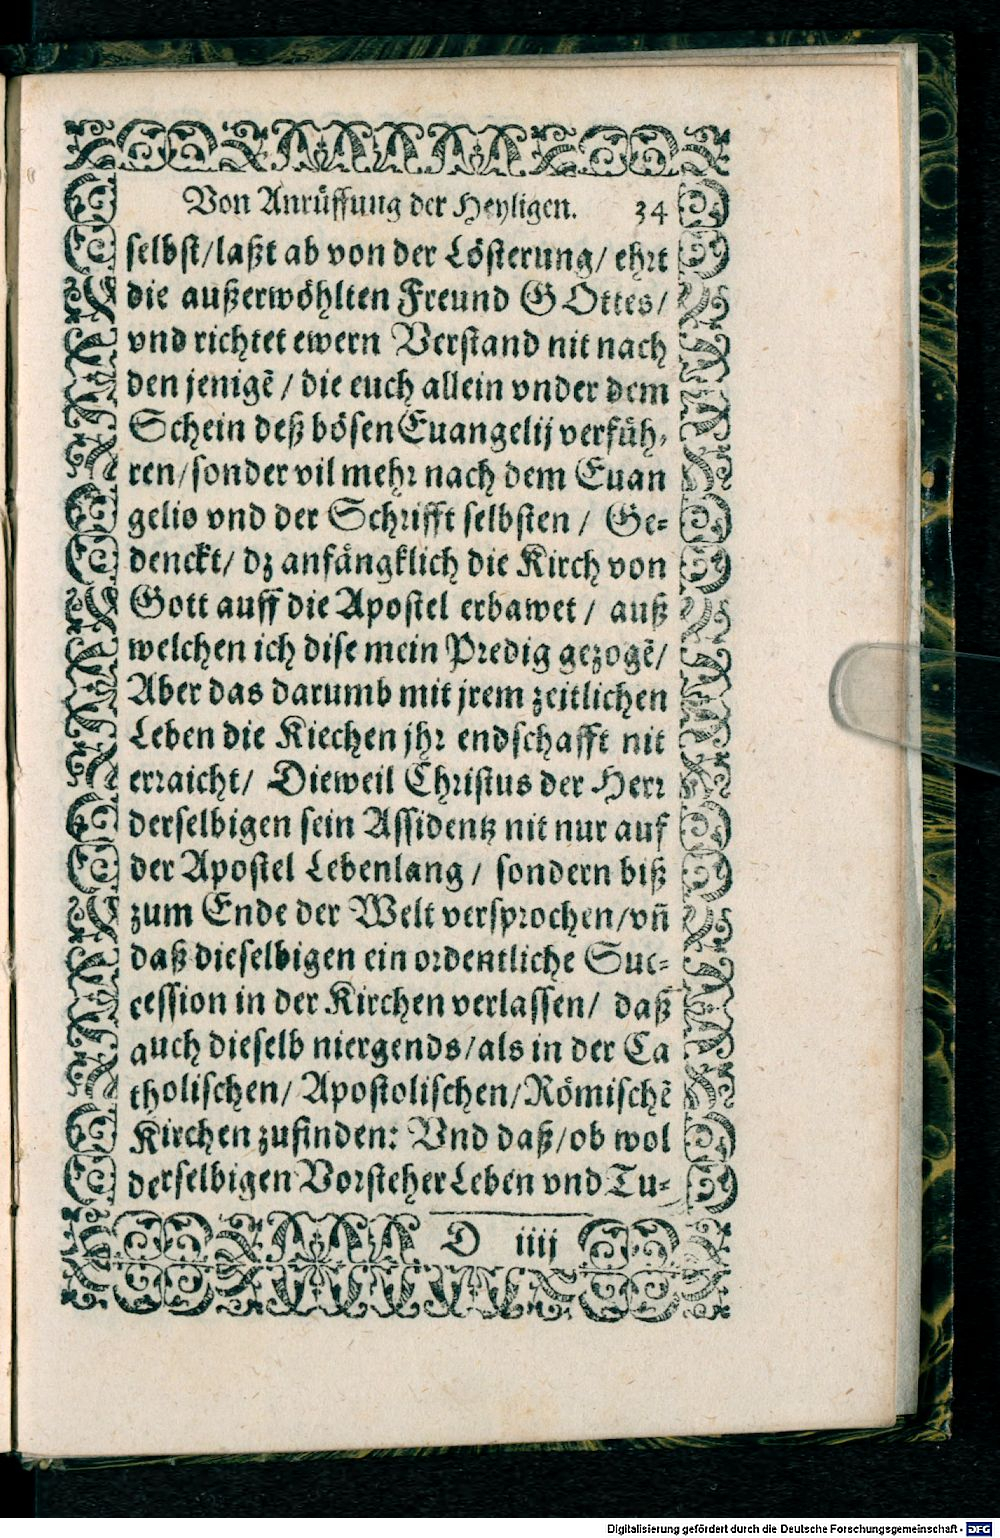 Von Anrüffung der Heyligen. 34
selbst/laßt ab von der Lösterung/ ehrt
die außerwöhlten Freund GOttes/
vnd richtet ewern Verstand nit nach
den jenigẽ / die euch allein vnder dem
Schein deß bösen Euangelij verfüh-
ren/sonder vil mehr nach dem Euan
gelio vnd der Schrifft selbsten / Ge-
denckt/ dz anfängklich die Kirch von
Gott auff die Apostel erbawet / auß
welchen ich dise mein Predig gezogẽ/
Aber das darumb mit jrem zeitlichen
Leben die Kiechen jhr endschafft nit
erraicht/ Dieweil Christus der Herr
derselbigen sein Assidentz nit nur auf
der Apostel Lebenlang / sondern biß
zum Ende der Welt versprochen/vñ
daß dieselbigen ein ordentliche Suc-
cession in der Kirchen verlassen/ daß
auch dieselb niergends/als in der Ca
tholischen/ Apostolischen/Römischẽ
Kirchen zufinden: Vnd daß/ob wol
derselbigen Vorsteher Leben vnd Tu-
D iiij
Digitalisierung gefördert durch die Deutsche Forschungsgemeinschaft - DFG